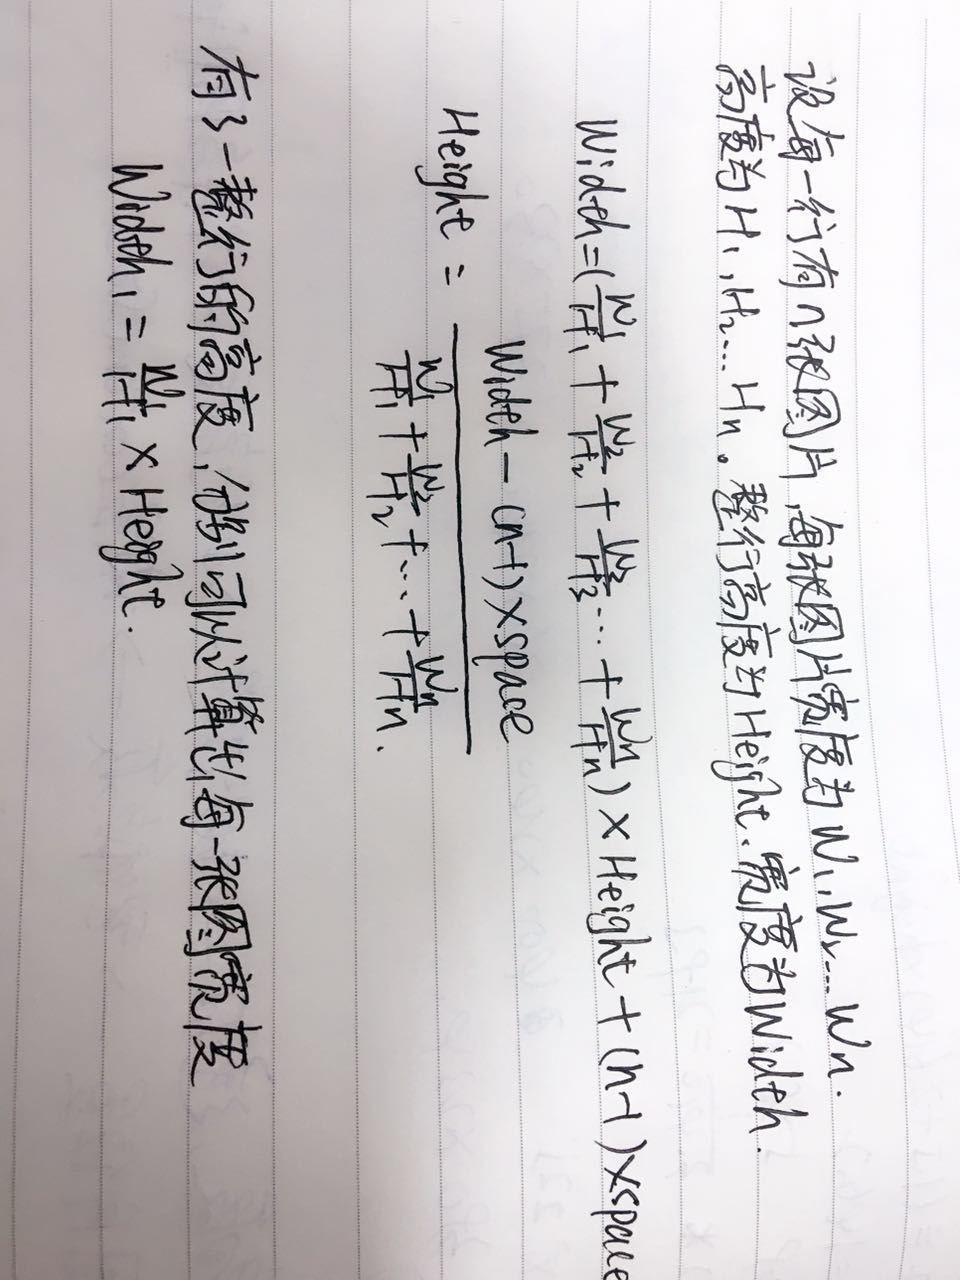 设每一行有n张图片,每张图片宽度为W₁,W₂...Wn.
高度为H₁,H₂...Hn。整行高度为Height.宽度为Width.
Width=(W₁/H₁+W₂/H₂+W₃/H₃...+Wn/Hn)×Height+(n-1)×space
Height=(Width-(n-1)×space)/(W₁/H₁+W₂/H₂+...+Wn/Hn).
有了一整行的高度,可以计算出每一张图宽度
Width₁=W₁/H₁×Height.